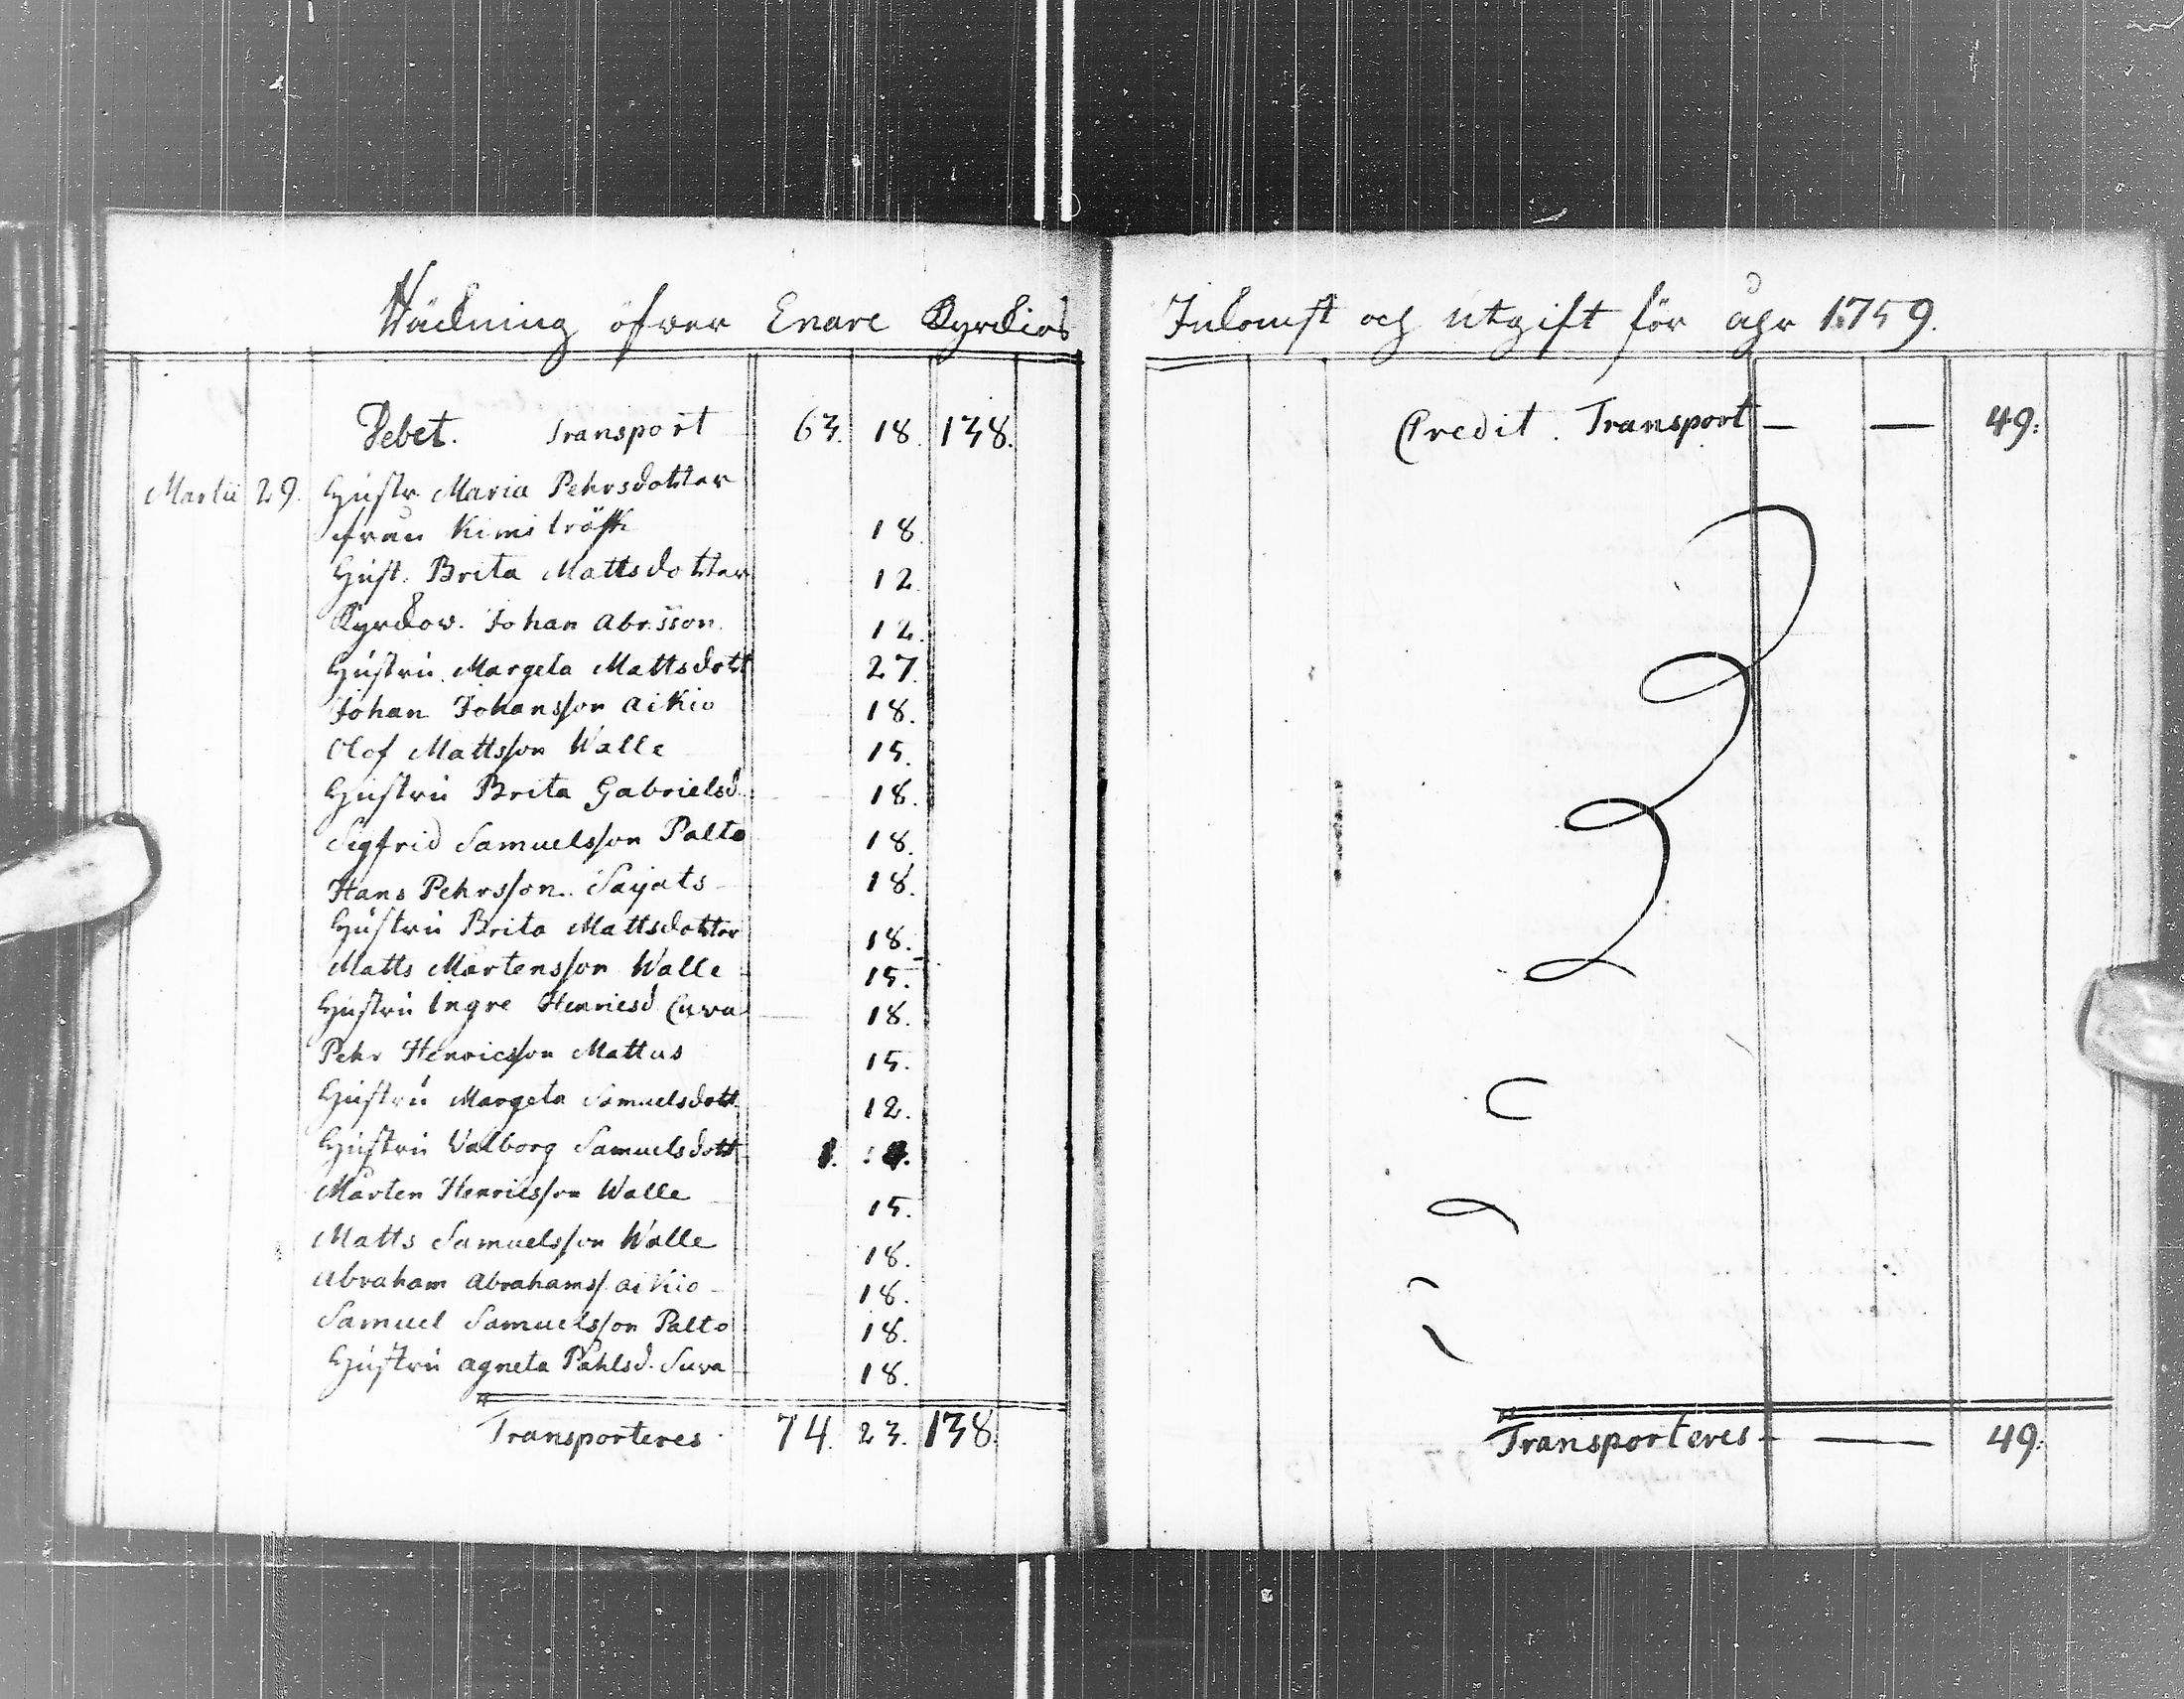 Räckning öfwer Enare Kyrckios
Debet. Transport 63. 18. 138.
Martii 29. Hustr. Maria Pehrsdotter
från Kimi träsk 18.
Hust. Brita Mattsdotter 12.
Kyrckow. Johan Abr:sson 12.
Hustru Margeta Mattsdott 27.
Johan Johansson Aikio 18.
Olof Mattsson Walle 15.
Hustru Brita Gabrielsd. 18.
Sigfrid Samuelsson Palto 18.
Hans Pehrsson Sajats 18.
Hustru Brita Mattsdotter 18.
Matts Mårtensson Walle 15.
Hustru Ingre Henricsd Cuva 18.
Pehr Henricsson Mattus 15.
Hustru Margeta Samuelsdott 12.
Hustru Valborg Samuelsdott 1.
Mårten Henricsson Walle 15.
Matts Samuelsson Walle 18.
Abraham Abrahams. Aikio 18.
Samuel Samuelsson Palto 18.
Hustru Agneta Påhlsd. Suva 18.
Transporteres 74. 23. 138.
Inkomst och Utgift för åhr 1759.
Credit. Transport — — 49:
Transporteres — 49: